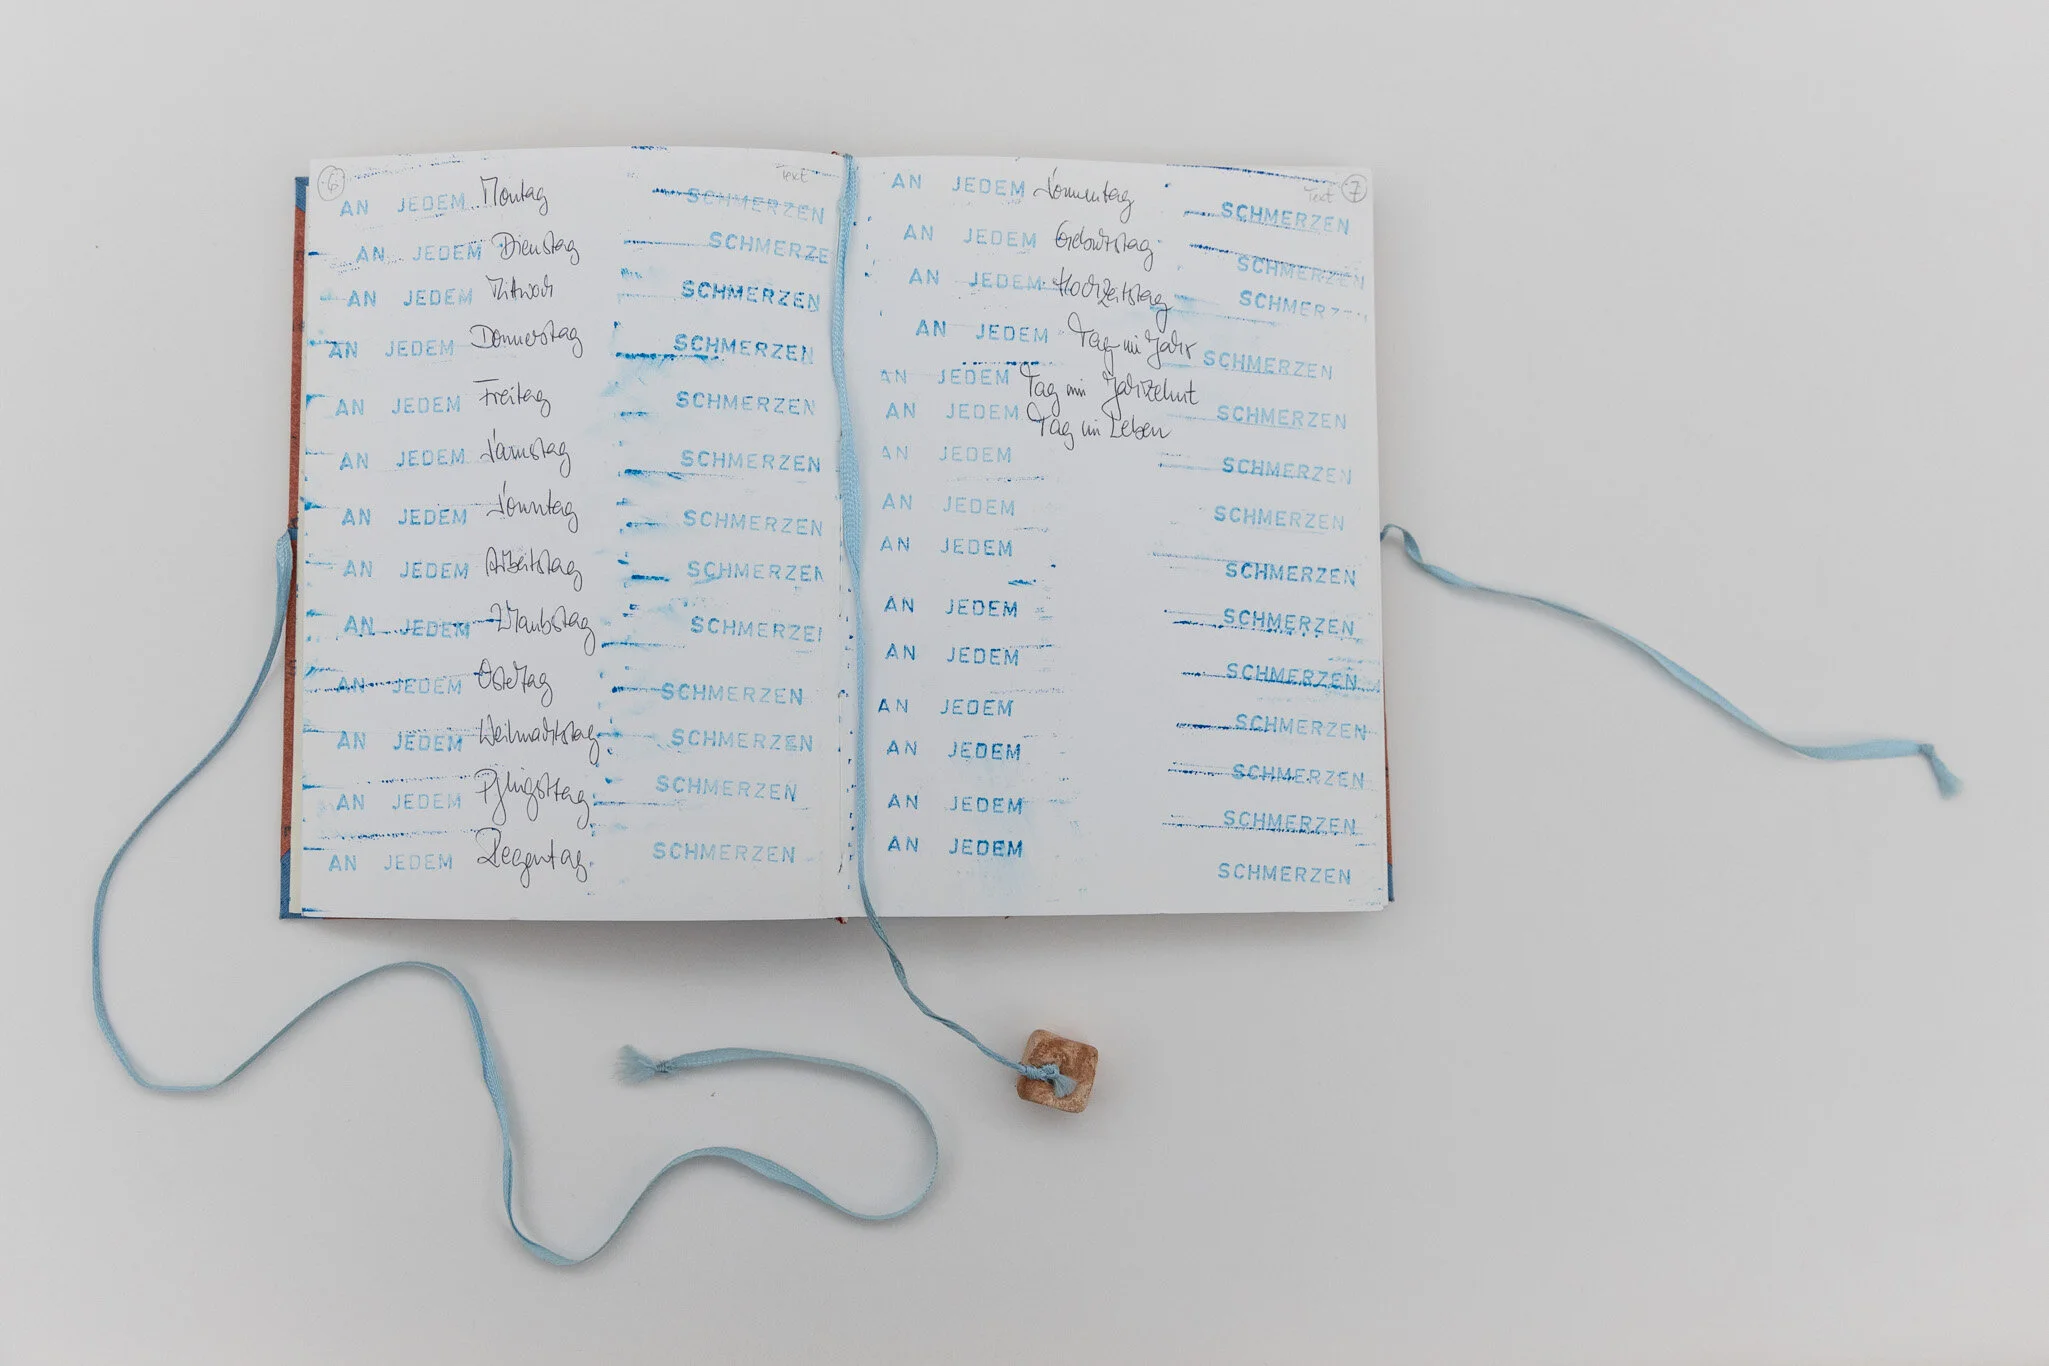 6 Text
AN JEDEM Montag SCHMERZEN
AN JEDEM Dienstag SCHMERZE
AN JEDEM Mittwoch SCHMERZEN
AN JEDEM Donnerstag SCHMERZEN
AN JEDEM Freitag SCHMERZEN
AN JEDEM Samstag SCHMERZEN
AN JEDEM Sonntag SCHMERZEN
AN JEDEM Arbeitstag SCHMERZEN
AN JEDEM Urlaubstag SCHMERZEI
AN JEDEM Ostertag SCHMERZEN
AN JEDEM Weihnachtstag SCHMERZEN
AN JEDEM Pfingsttag SCHMERZEN
AN JEDEM Regentag SCHMERZEN
Text 7
AN JEDEM Sonnentag SCHMERZEN
AN JEDEM Geburtstag SCHMERZEN
AN JEDEM Hochzeitstag SCHMERZEN
AN JEDEM Tag im Jahr SCHMERZEN
AN JEDEM Tag im Jahrzehnt SCHMERZEN
AN JEDEM Tag im Leben SCHMERZEN
AN JEDEM SCHMERZEN
AN JEDEM SCHMERZEN
AN JEDEM SCHMERZEN
AN JEDEM SCHMERZEN
AN JEDEM SCHMERZEN
AN JEDEM SCHMERZEN
AN JEDEM SCHMERZEN
AN JEDEM SCHMERZEN
AN JEDEM